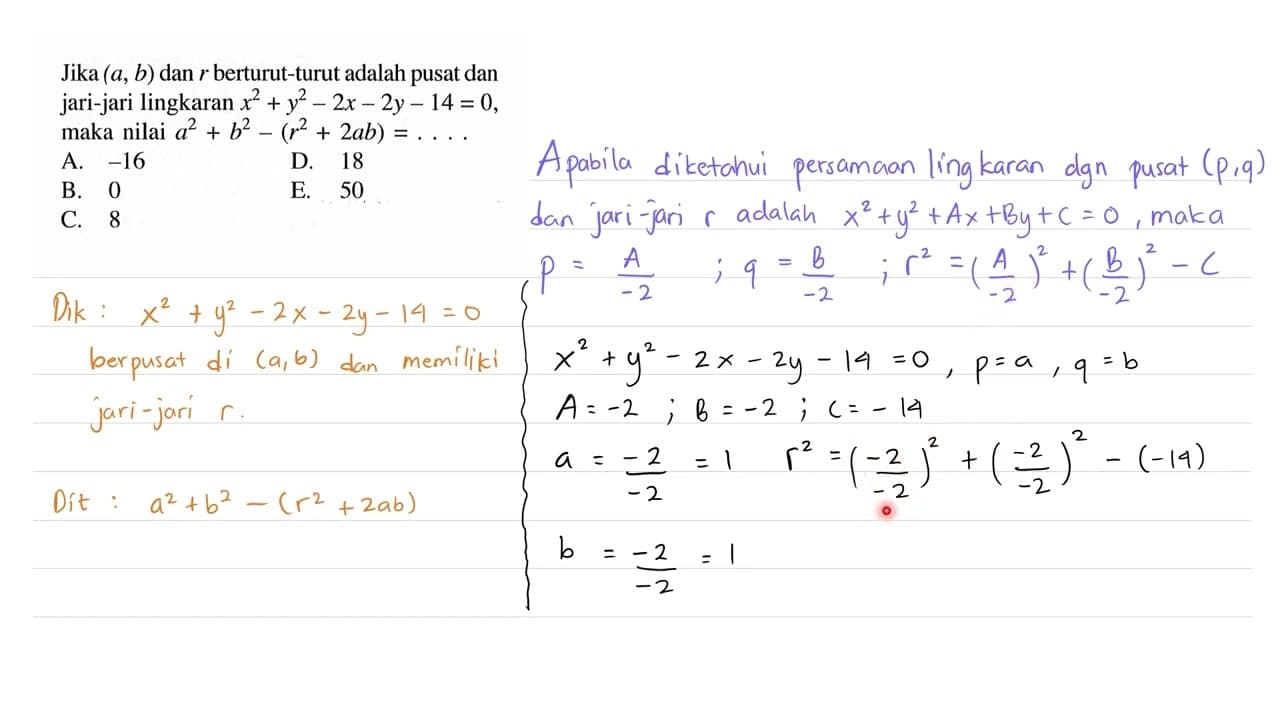 Jika (a, b) dan r berturut-turut adalah pusat dan
jari-jari lingkaran x² + y² – 2x – 2y – 14 = 0,
maka nilai a² + b² – (r² + 2ab) = . . . .
A. –16 D. 18
B. 0 E. 50
C. 8
Apabila diketahui persamaan lingkaran dgn pusat (p,q)
dan jari-jari r adalah x² + y² + Ax + By + C = 0, maka
p = A/-2 ; q = B/-2 ; r² = (A/-2)² + (B/-2)² - C
Dik : x² + y² - 2x - 2y - 14 = 0
berpusat di (a,b) dan memiliki
jari-jari r.
Dit : a² + b² - (r² + 2ab)
x² + y² - 2x - 2y - 14 = 0, p = a, q = b
A = -2 ; B = -2 ; C = -14
a = -2/-2 = 1 r² = (-2/-2)² + (-2/-2)² - (-14)
b = -2/-2 = 1